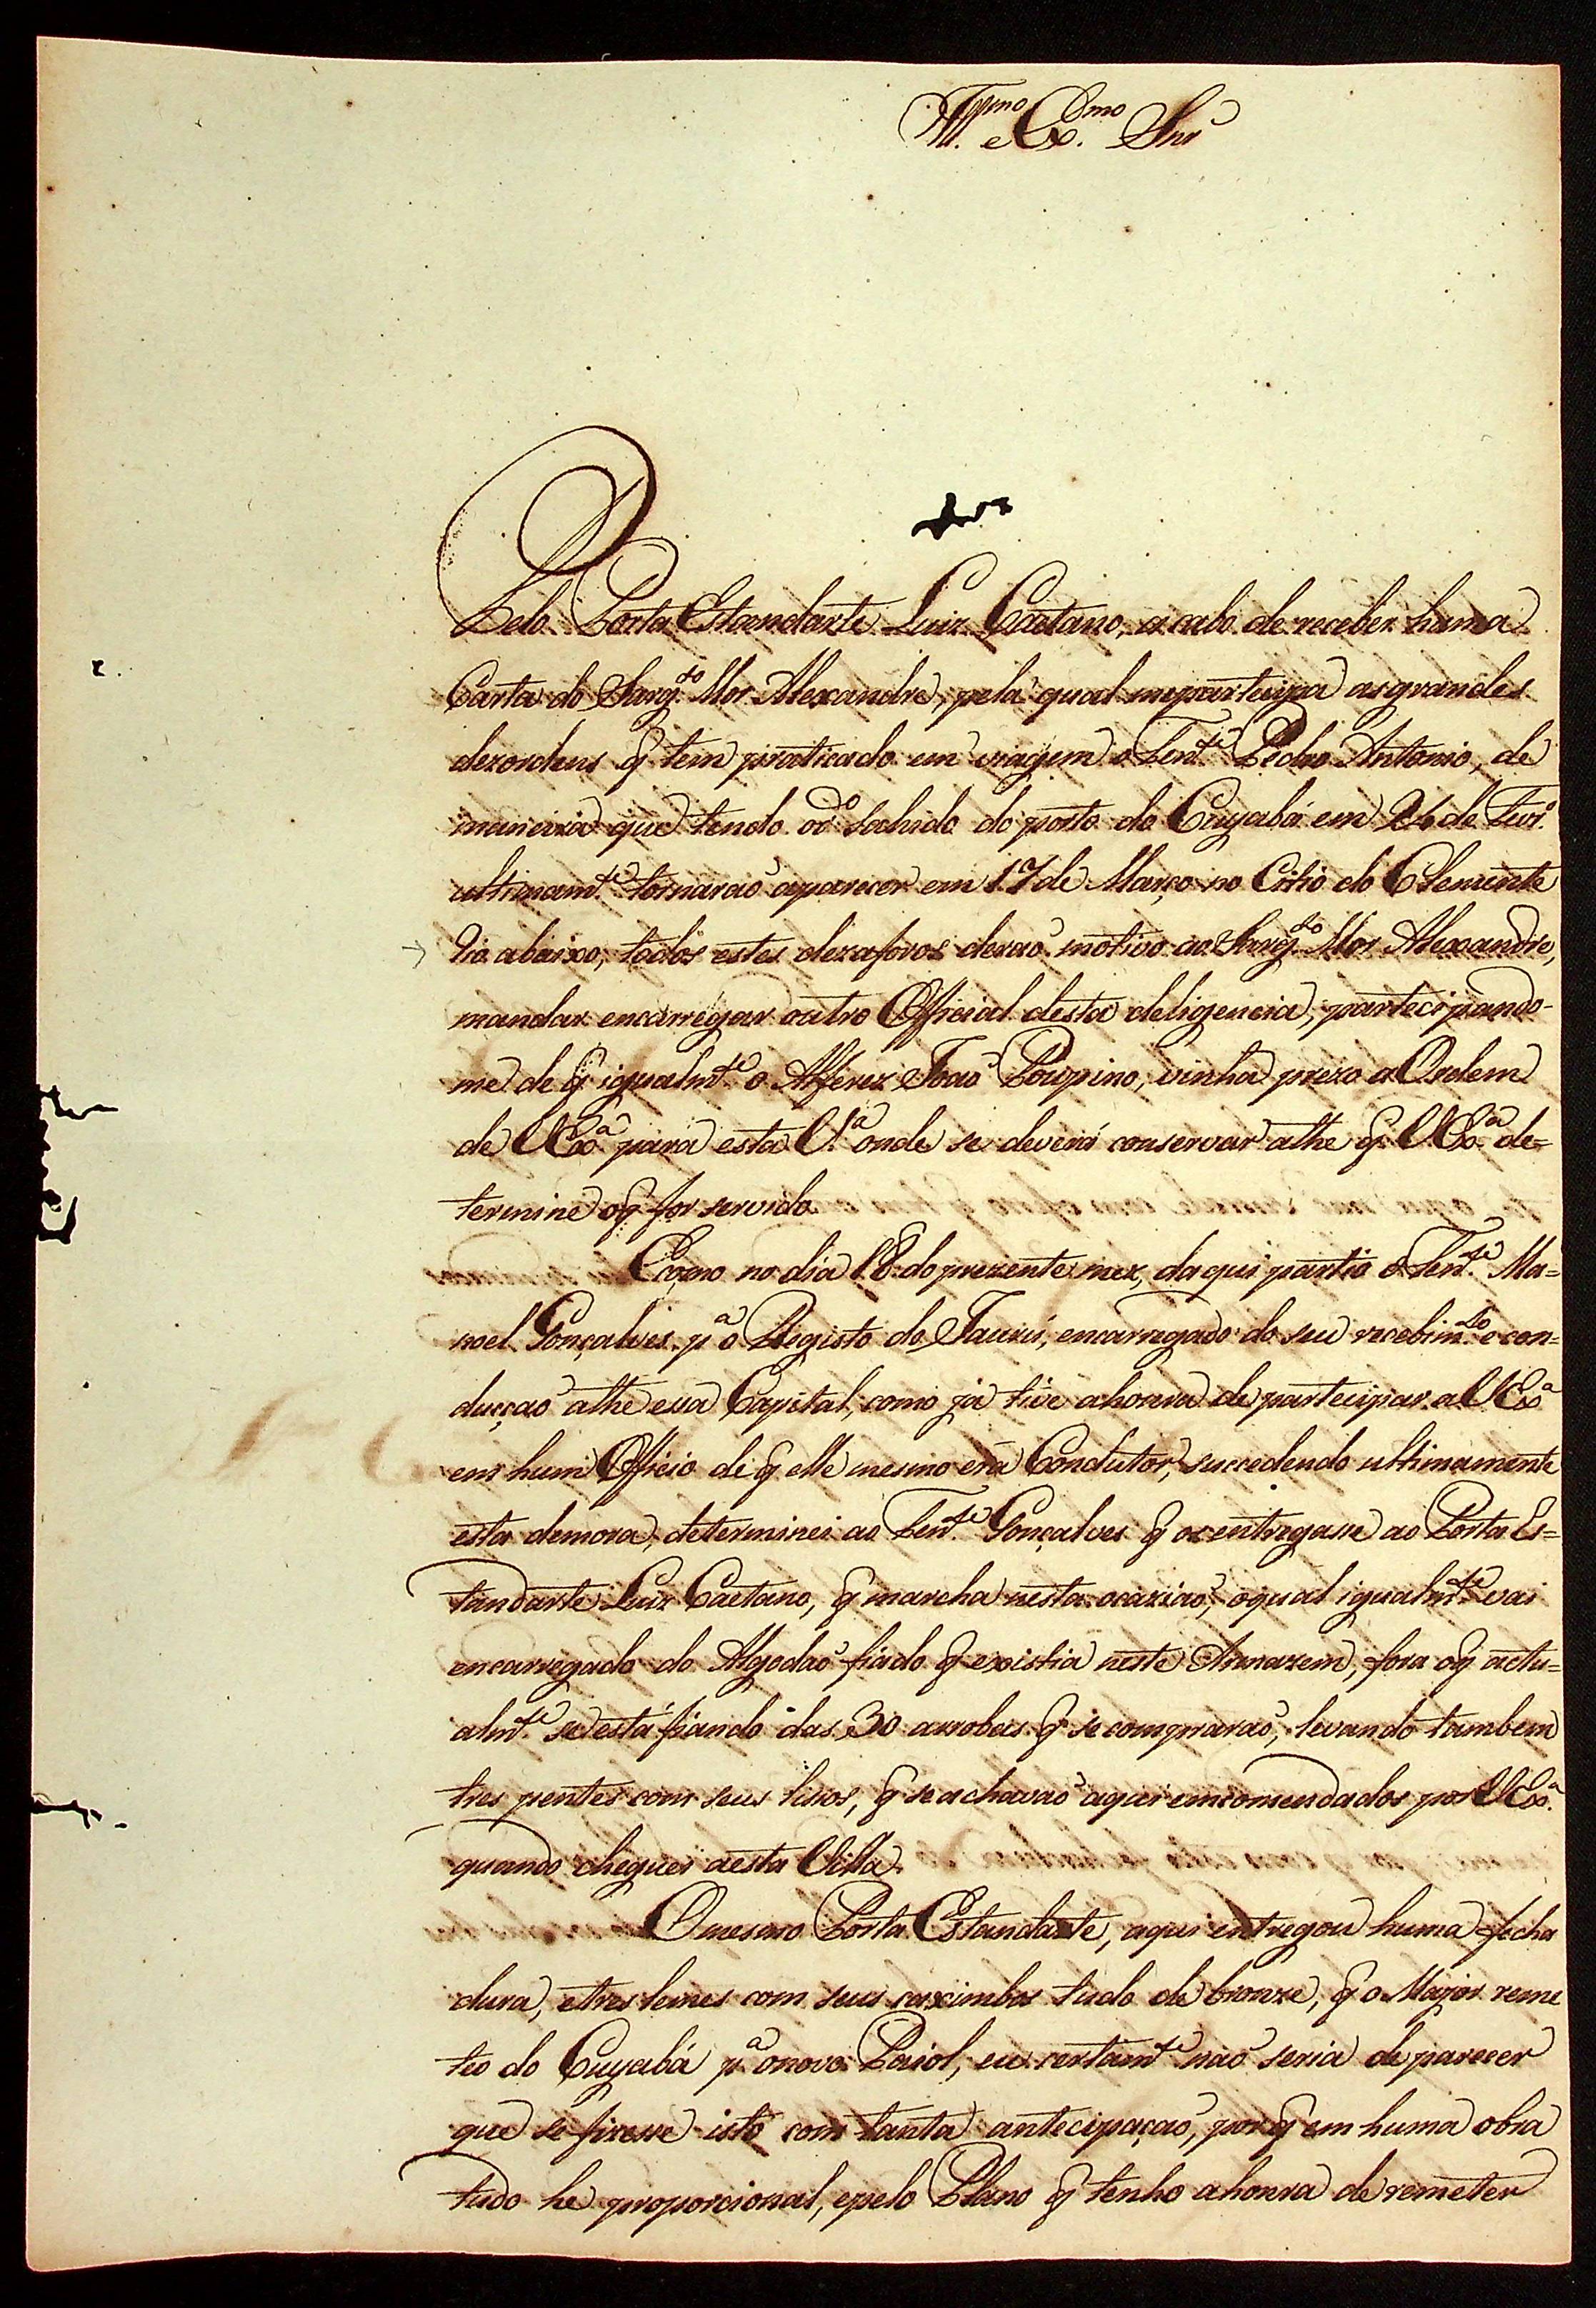 Ill.mo e Ex.mo Snr
Pelo Porta Estandarte Luiz Caetano, acabo de receber huma
Carta do Sarg.to Mor Alexandre, pela qual me partecipa as grandes
dezordens q̃ tem praticado em viagem o Ten.te Pedro Antonio, de
maneira que tendo sahido do porto do Cuyabá em 26 de Fevr.o
ultimam.te tornaraõ aparecer em 17 de Março no Citio do Clemente
Rio abaixo; todos estes dezaforos deraõ motivo ao Sarg.to Mor Alexandre,
mandar encarregar outro Official desta deligencia, partecipando-
me de q̃ igualm.te o Alferez Joaõ Poupino, vinha prezo a Ordem
de V.Ex.a para esta V.a onde se deverá conservar athe q̃ V.Ex.a de=
termine oq̃ for servido.
Como no dia 18 do prezente mez, daqui partio o Ten.te Ma=
noel Gonçalves p.a o Registo do Jaurú, encarregado do seu recebim.to e con=
ducçaõ athe essa Capital, como já tive ahonra de partecipar a V.Ex.a
em hum Officio de q̃ elle mesmo era Condutor, succedendo ultimamente
esta demora, determinei ao Ten.te Gonçalves q̃ os entregasse ao Porta Es=
tandarte Luiz Caetano, q̃ marcha nesta ocaziaõ, oqual igualm.te vai
encarregado do Algodaõ fiado q̃ existia neste Armazem, fora oq̃ actu=
alm.te se está fiando das 30 arrobas q̃ se compraraõ, levando tambem
tres pentes com seus lisos, q̃ se achavaõ aqui emcomendados por V.Ex.a
quando cheguei aesta Villa.
O mesmo Porta Estandarte, aqui entregou huma fecha
dura, etres lemes com seus caximbos tudo de bronze, q̃ o Major reme
teo do Cuyabá p.a onovo Paiol, eu certam.te naõ seria de parecer
que se fizesse isto com tanta antecipaçaõ, por q̃ em huma obra
tudo he proporcional, epelo Plano q̃ tenho ahonra de remeter